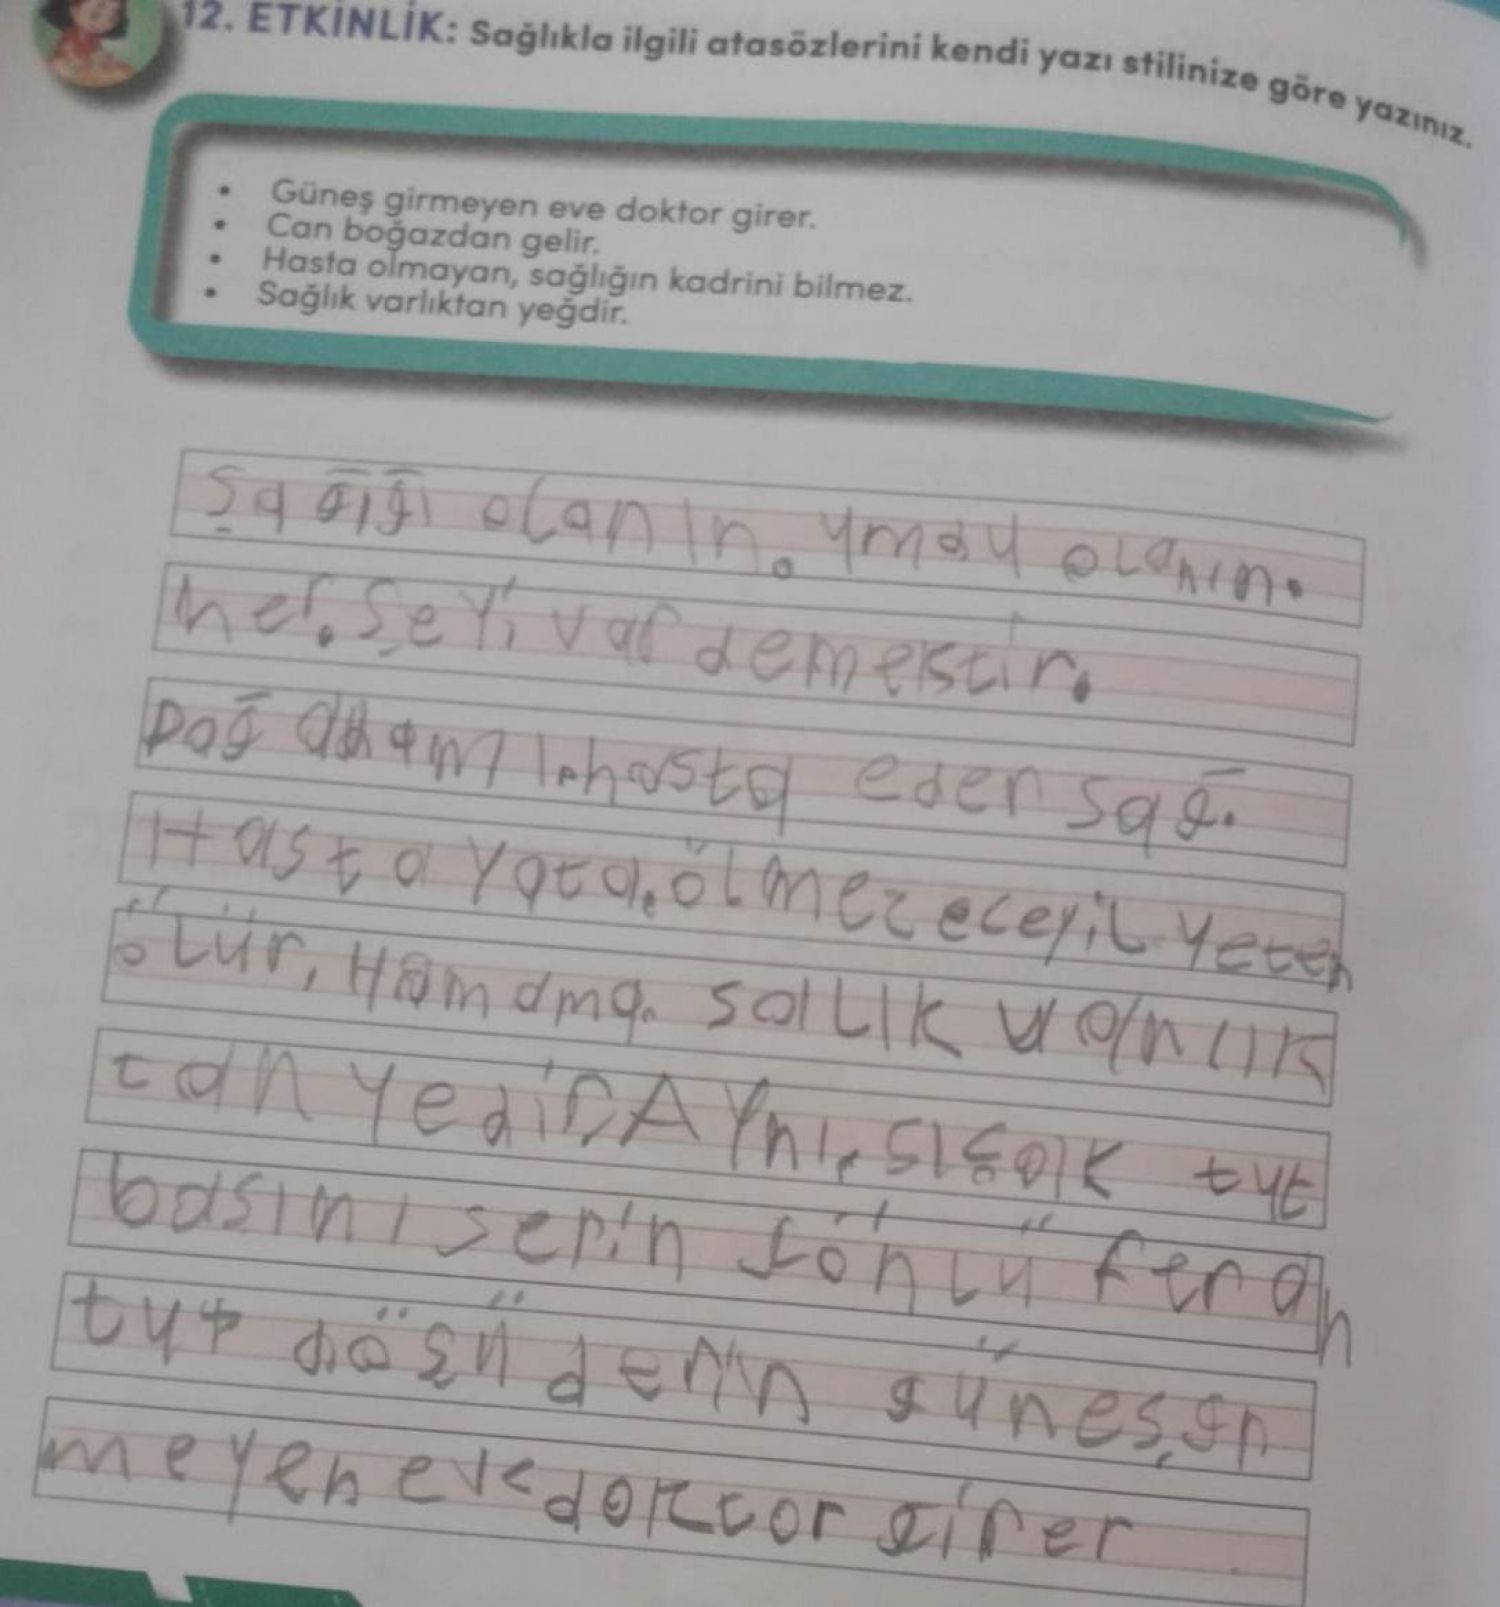 12. ETKİNLİK: Sağlıkla ilgili atasözlerini kendi yazı stilinize göre yazınız.
• Güneş girmeyen eve doktor girer.
• Can boğazdan gelir.
• Hasta olmayan, sağlığın kadrini bilmez.
• Sağlık varlıktan yeğdir.
Sağığı olanın. ymay olanın.
her. şeyi var demektir.
hasta eder sağ.
Hasta yata. ölmez eceyil yeten
ölür, Hamama. sallık varlık
tan yedir AYnı. sısak tut
basını serin gönlü ferah
tut derin güneş. gir
meyen eve doktor girer